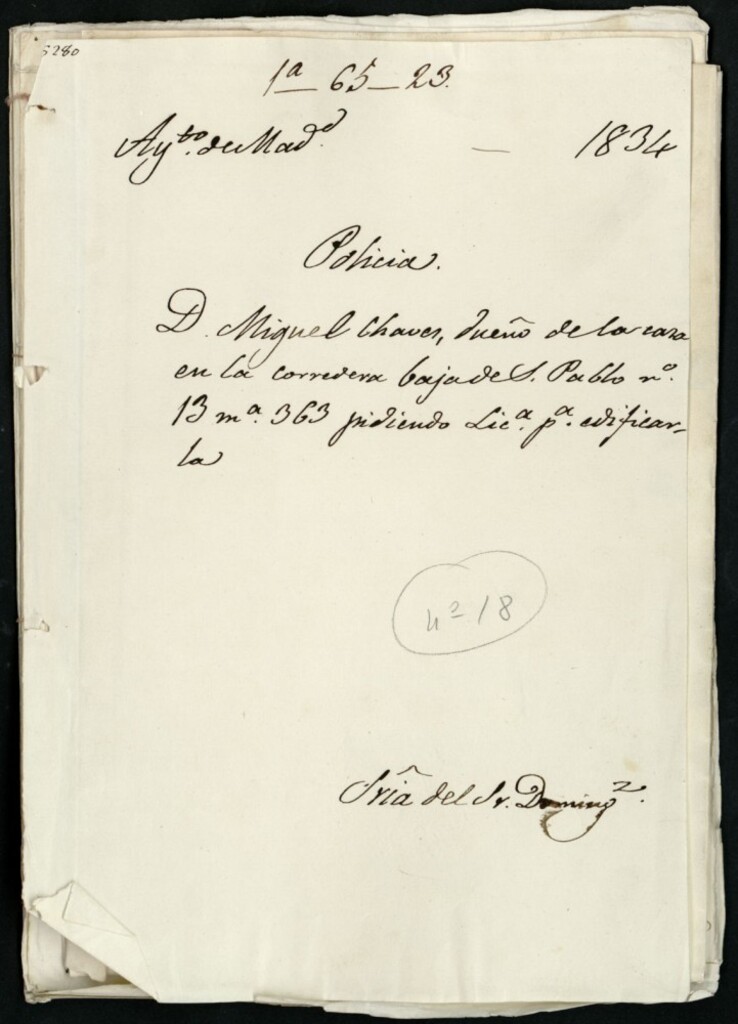 5280
1ª — 65 — 23.
Ayto. de Madd. — 1834
Policia.
D. Miguel Chaves, dueño de la casa
en la corredera baja de S. Pablo nº.
13 mª. 363 pidiendo Licª. pª. edificar-
la
nº 18
Sria del Sr. Domingz.